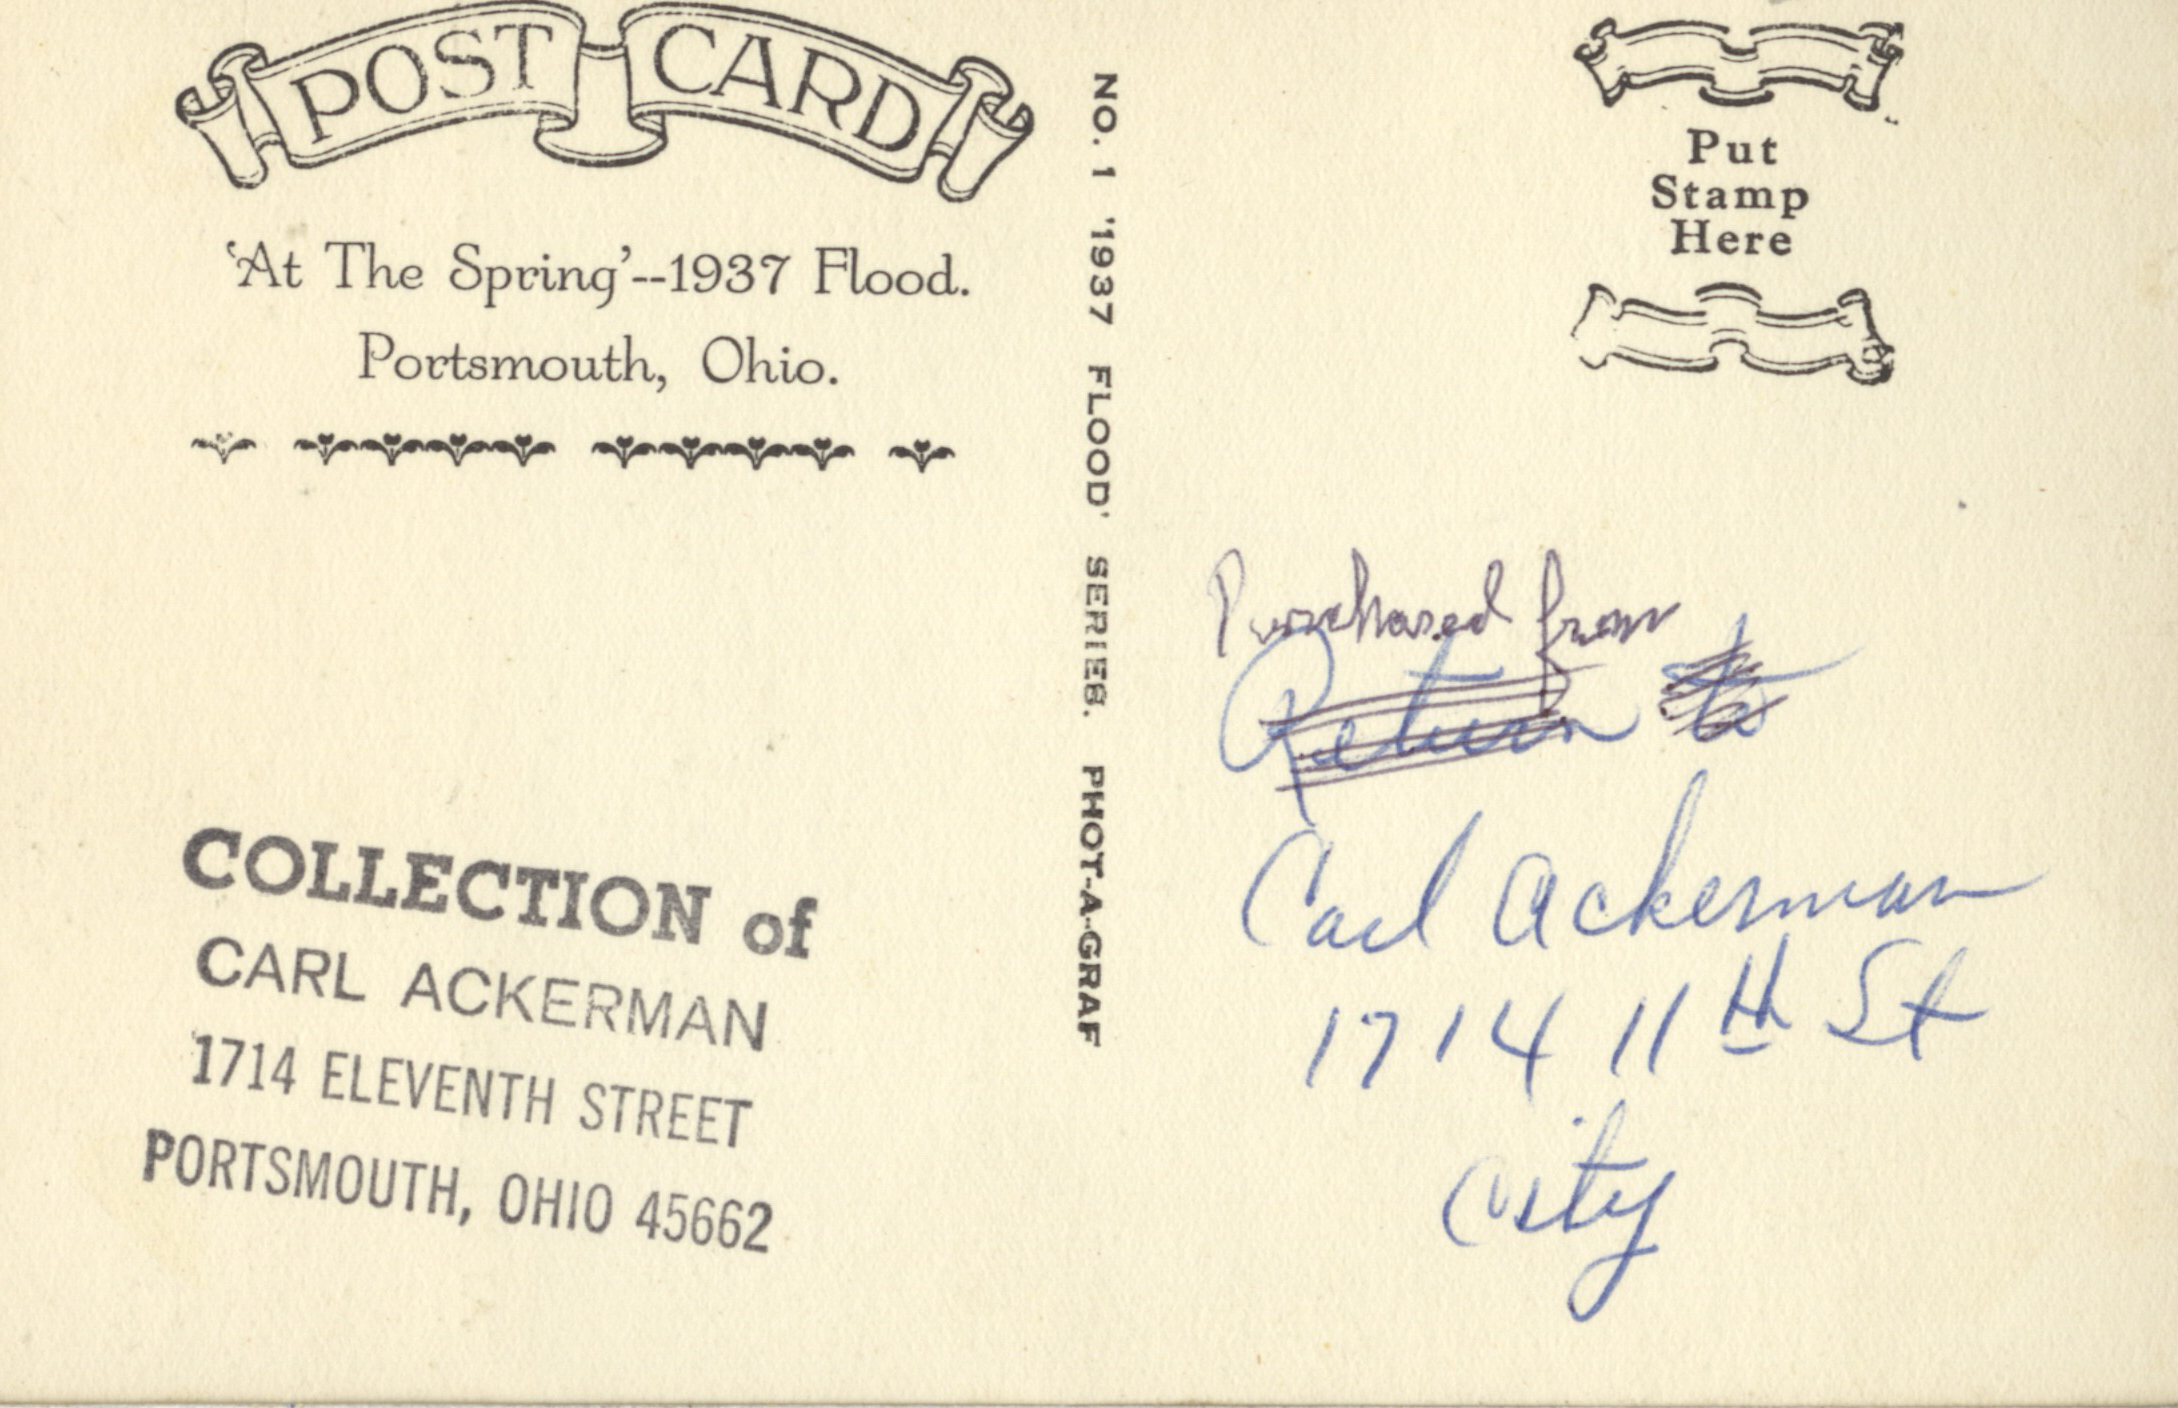 POST CARD
'At The Spring'--1937 Flood.
Portsmouth, Ohio.
COLLECTION of
CARL ACKERMAN
1714 ELEVENTH STREET
PORTSMOUTH, OHIO 45662
NO. 1 '1937 FLOOD' SERIES. PHOT-A-GRAF
Put
Stamp
Here
Purchased from
Return to
Carl Ackerman
1714 11th St
City